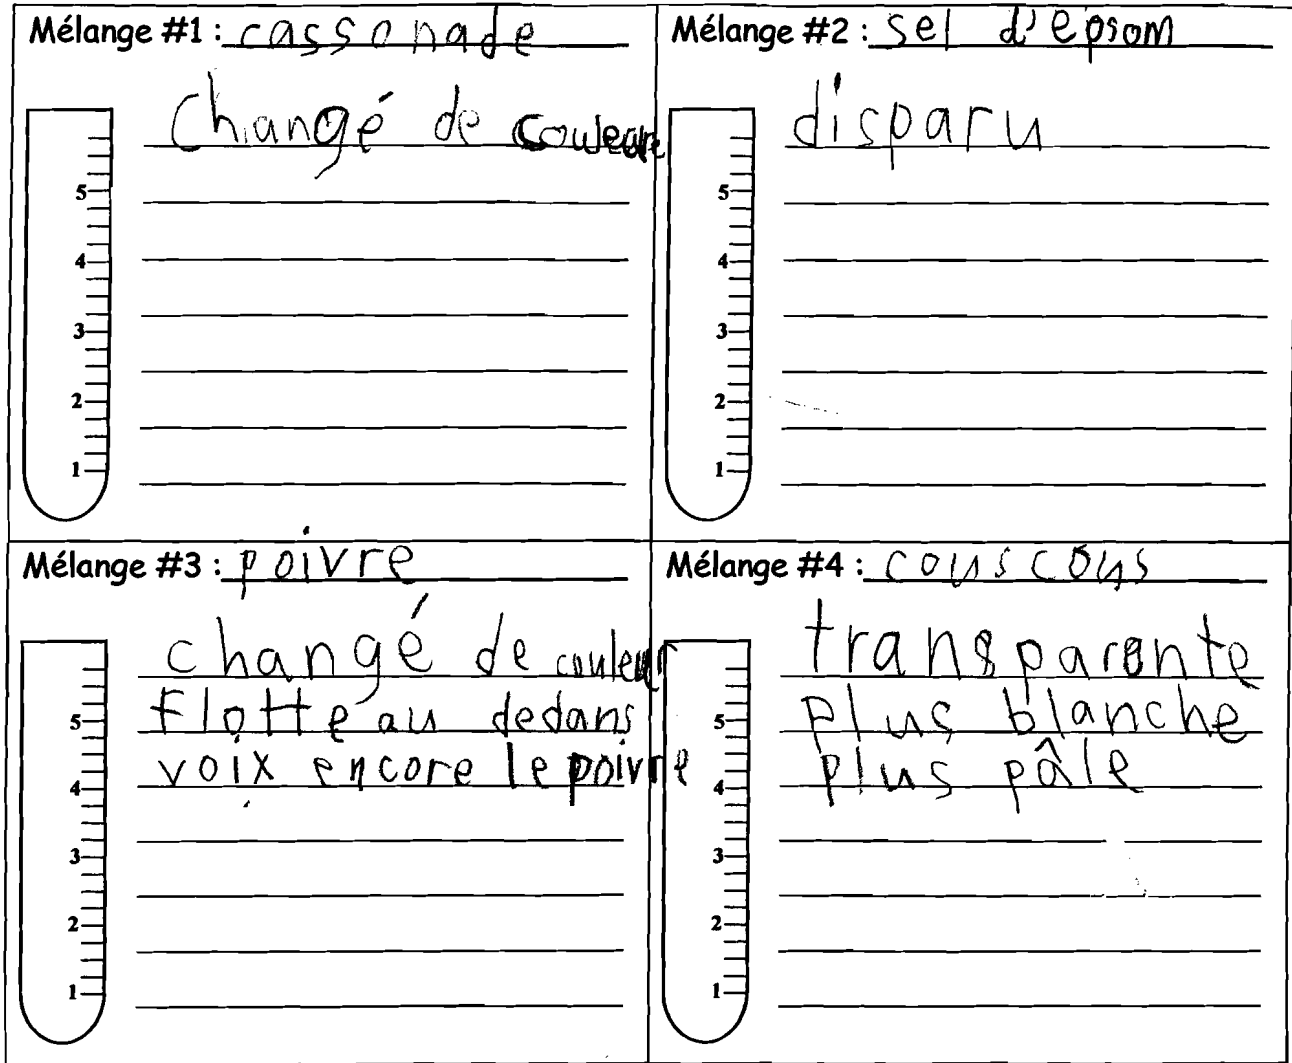 Mélange #1 : cassonade
changé de couleure
5
4
3
2
1
Mélange #2 : sel d'epsom
disparu
5
4
3
2
1
Mélange #3 : poivre
changé de couleur
flotte au dedans
voix encore le poivre
5
4
3
2
1
Mélange #4 : couscous
transparente
plus blanche
plus pâle
5
4
3
2
1